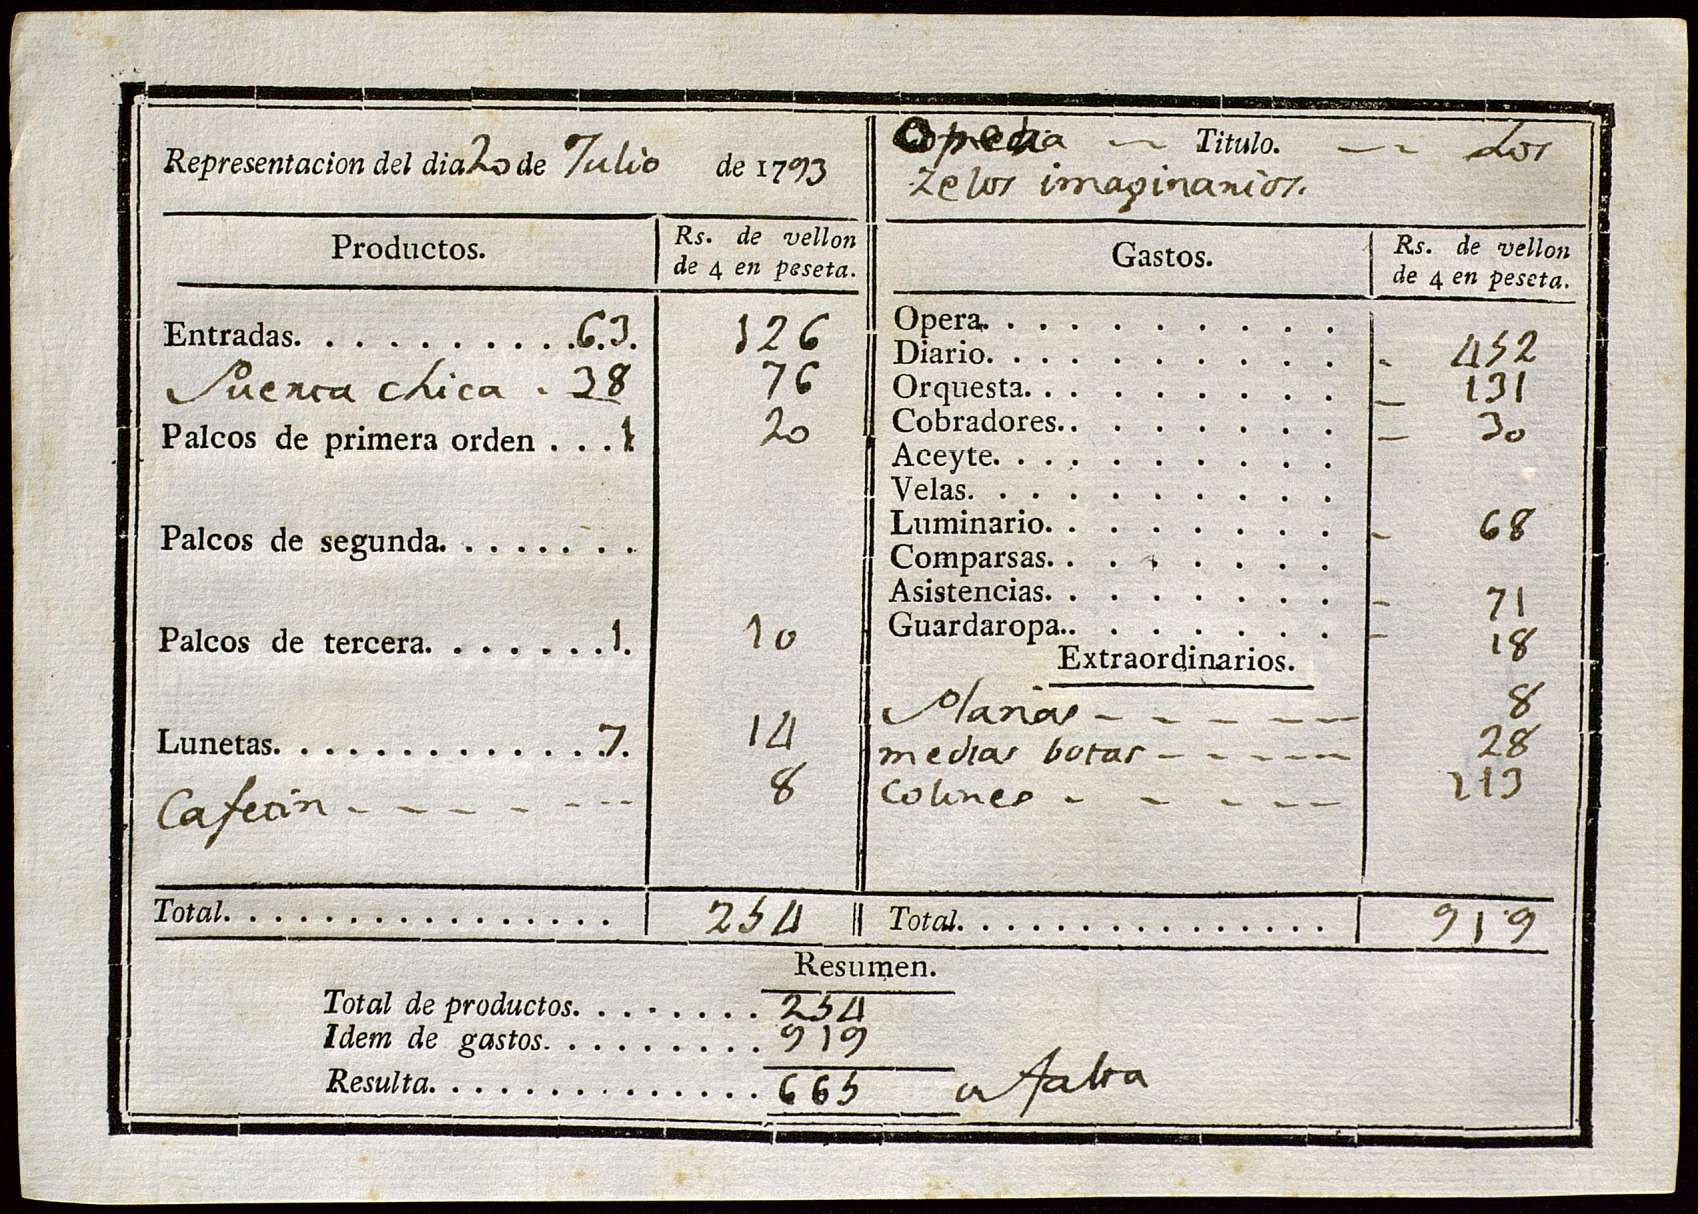 Representacion del dia 20 de Julio de 1793
Opera Titulo. Los
zelos imaginarios.
Productos. Rs. de vellon
de 4 en peseta.
Entradas. . . . . . . . . . .63. 126
Puerta chica . 38 76
Palcos de primera orden . . .1 20
Palcos de segunda. . . . . . . .
Palcos de tercera. . . . . . .1. 10
Lunetas. . . . . . . . . . . . .7. 14
Cafetin - - - - - - - 8
Total. . . . . . . . . . . . . . . . . 254
Gastos. Rs. de vellon
de 4 en peseta.
Opera. . . . . . . . . .
Diario. . . . . . . . . . - 452
Orquesta. . . . . . . . . - 131
Cobradores.. . . . . . . - 30
Aceyte. . . . . . . . . .
Velas. . . . . . . . . .
Luminario. . . . . . . . - 68
Comparsas. . . . . . . .
Asistencias. . . . . . . . - 71
Guardaropa.. . . . . . . - 18
Extraordinarios.
8
medias botas - - - - - 28
113
Total. . . . . . . . . . . . . . . . 919
Resumen.
Total de productos. . . . . . . . 254
Idem de gastos. . . . . . . . . 919
Resulta. . . . . . . . . . . . . . 665 falta